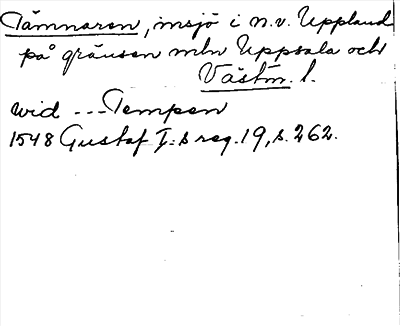 Tämnaren, insjö i n.v. Uppland
på gränsen mln Uppsala och
Västm. l.
wid --- Tempen
1548 Gustaf I:s reg. 19, s. 262.